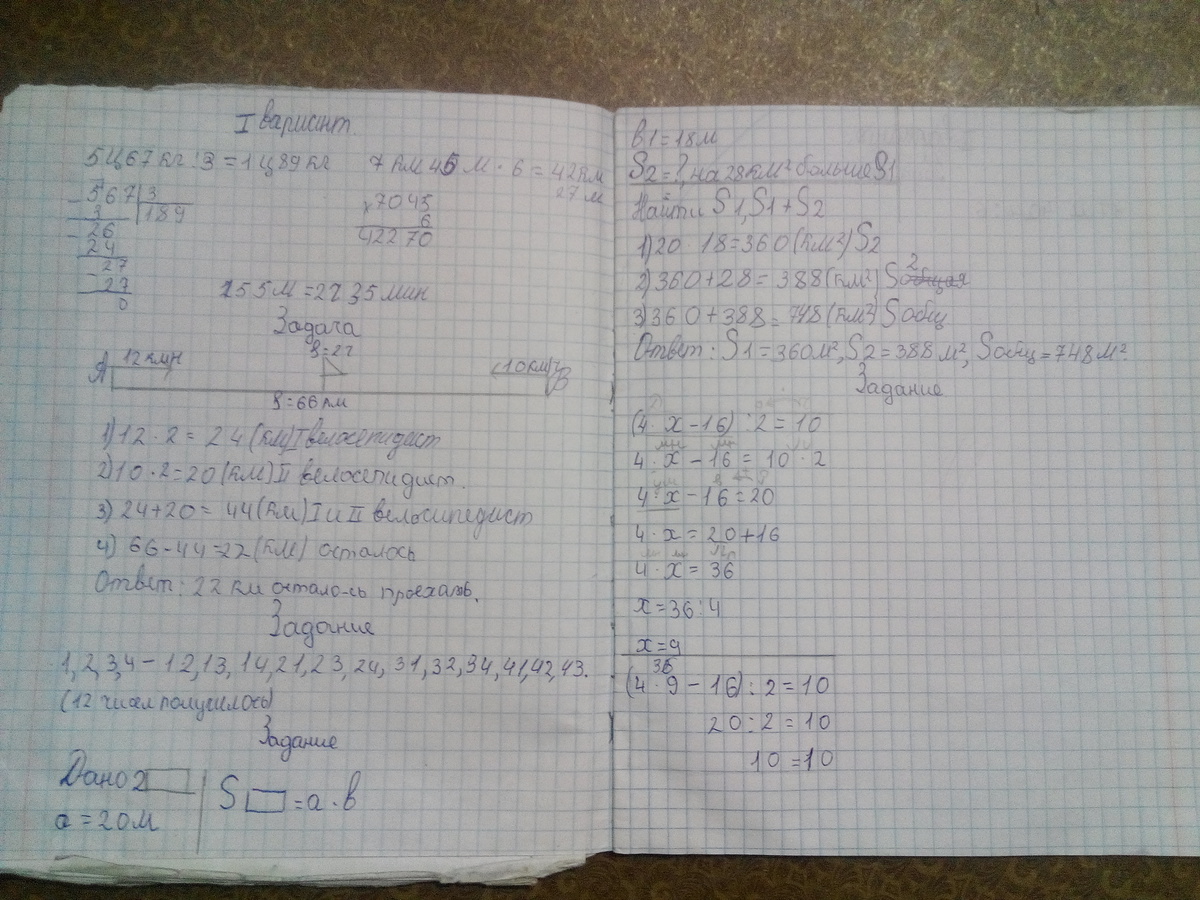 I вариант.
5ц67кг:3=1ц89кг 7км45м·6=42км
27м
567 3
3 189
26
24
27
27
0
×7045
6
42270
155м=2г35мин
Задача
12км/ч S=2г 10км/ч
A B
S=66км
1) 12·2=24(км) I велосепидист
2) 10·2=20(км) II велосепидист.
3) 24+20=44(км) I и II велосипедист
4) 66-44=22(км) осталось
Ответ: 22 км осталось проехать.
Задание
1,2,3,4-12,13,14,21,23,24,31,32,34,41,42,43.
(12 чисел получилось)
Задание
Дано 2
a=20м
S =a·в
в1=18м
S2=?, на 28км² больше S1
Найти S1, S1+S2
1) 20·18=360(км²) S2
2) 360+28=388(км²) S2 общая
3) 360+388=748(км²) Sобщ
Ответ: S1=360м², S2=388м², Sобщ=748м².
Задание
(4·x-16):2=10
4·x-16=10·2
4·x-16=20
4·x=20+16
4·x=36
x=36:4
x=9
36
(4·9-16):2=10
20:2=10
10=10